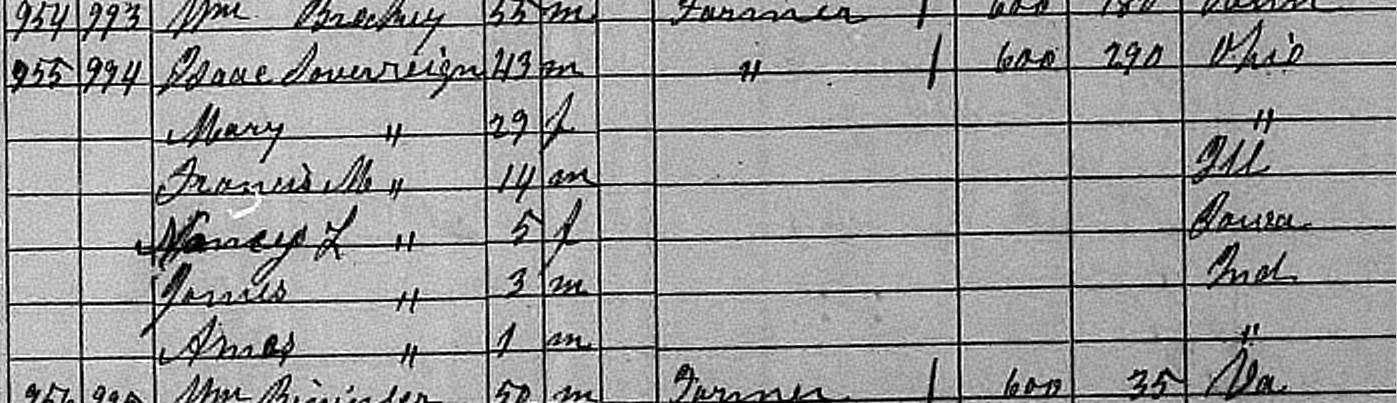 954 993 Wm 55 m Farmer 1 600 180
955 994 Isaac Sovereign 43 m " 1 600 290 Ohio
Mary " 29 f "
Francis M " 14 m Ill
Nancy L " 5 f Iowa
James " 3 m Ind
Amos " 1 m "
956 995 Wm 50 m Farmer 1 600 35 Va